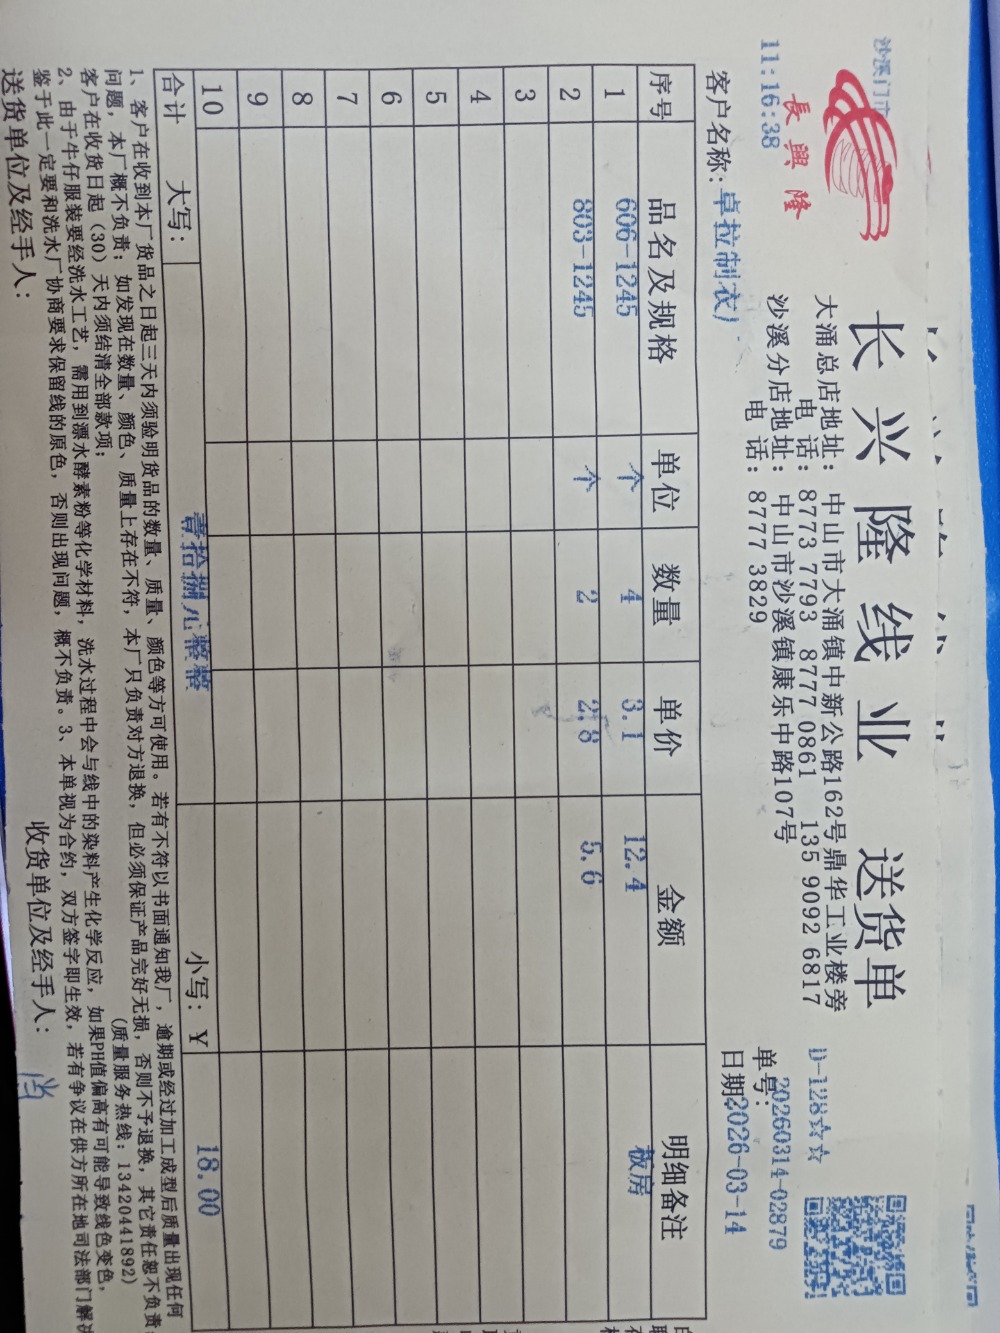 沙溪门市
11:16:38
長興隆
长兴隆线业 送货单
大涌总店地址：中山市大涌镇中新公路162号鼎华工业楼旁
电话：8773 7793 8777 0861 135 9092 6817
沙溪分店地址：中山市沙溪镇康乐中路107号
电话：8777 3829
D-128☆☆
单号：20260314-02879
日期：2026-03-14
客户名称：卓拉制衣厂
序号 品名及规格 单位 数量 单价 金额 明细备注
1 606-1245 个 4 3.1 12.4 板房
2 803-1245 个 2 2.8 5.6
3
4
5
6
7
8
9
10
合计 大写：壹拾捌元整 小写：¥ 18.00
1、客户在收到本厂货品之日起三天内须验明货品的数量、质量、颜色等方可使用。若有不符以书面通知我厂，逾期或经过加工成型后质量出现任何
问题，本厂概不负责；如发现在数量、颜色、质量上存在不符，本厂只负责对方退换，但必须保证产品完好无损，否则不予退换，其它责任恕不负责；
客户在收货日起（30）天内须结清全部款项； (质量服务热线：13420441892)
2、由于牛仔服装要经洗水工艺，需用到漂水酵素粉等化学材料，洗水过程中会与线中的染料产生化学反应，如果PH值偏高有可能导致线色变色，
鉴于此一定要和洗水厂协商要求保留线的原色，否则出现问题，概不负责。3、本单视为合约，双方签字即生效，若有争议在供方所在地司法部门解决
送货单位及经手人： 收货单位及经手人：